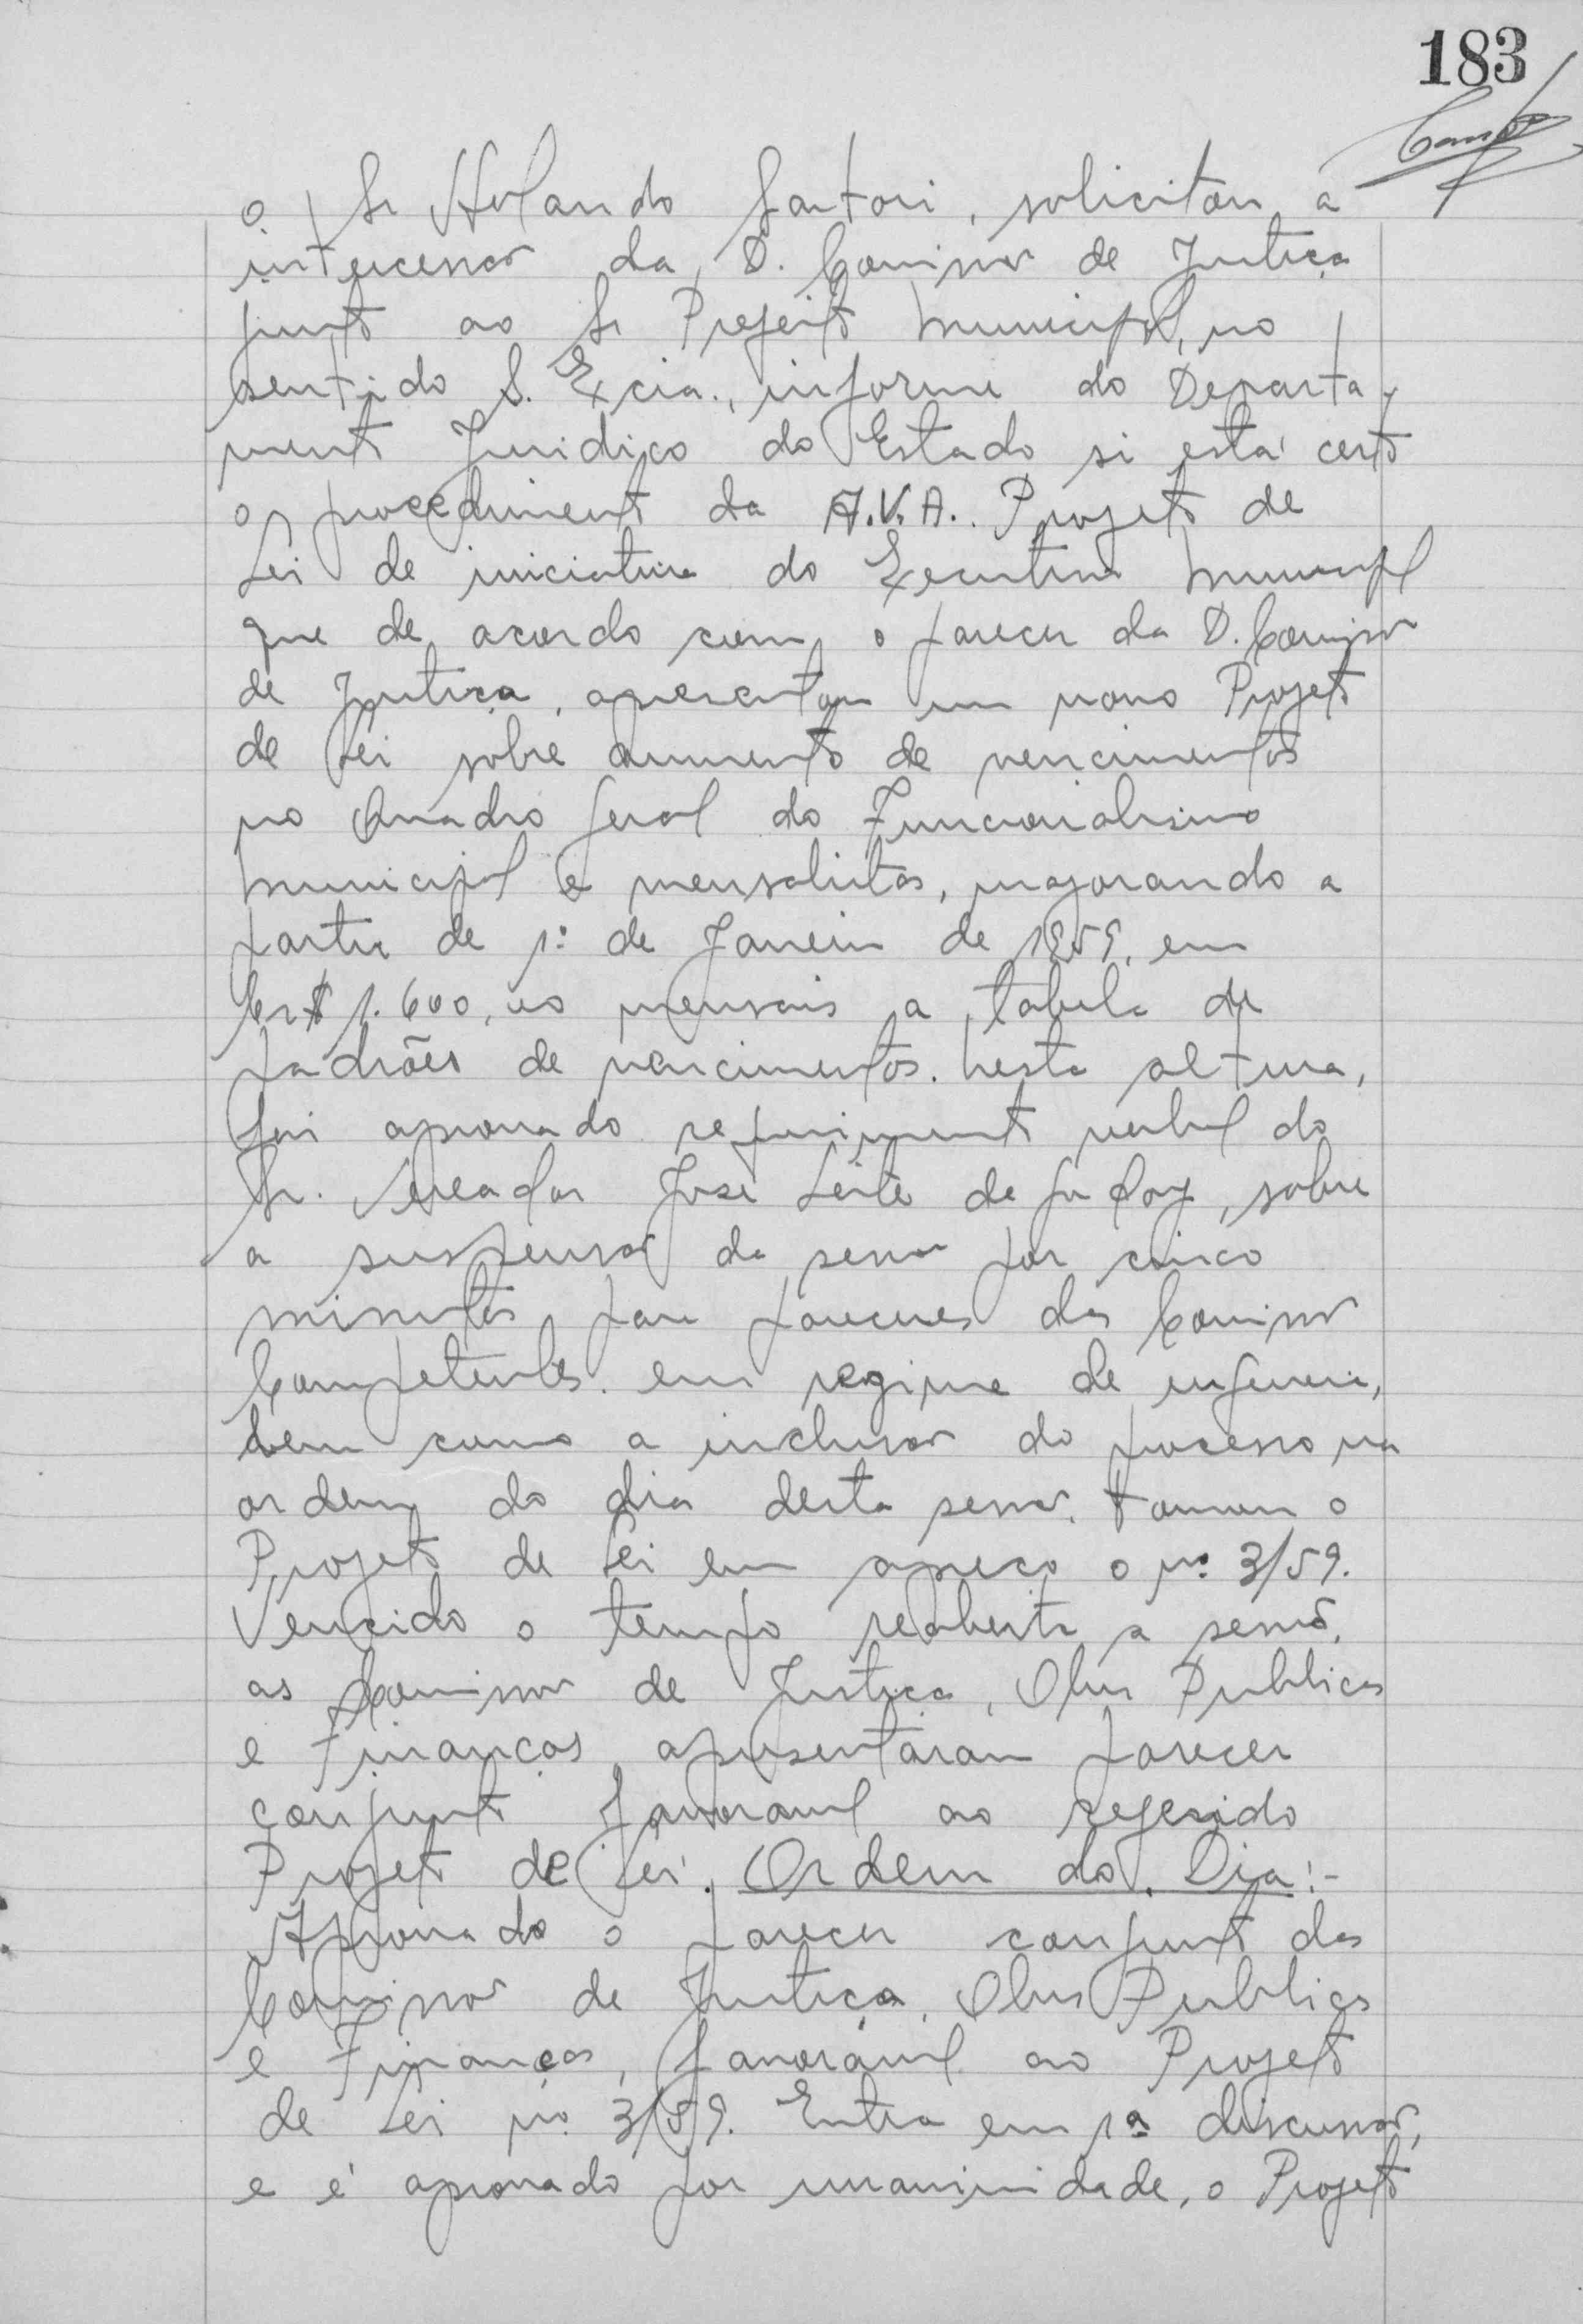 183
o Sr Holando Sartori, solicitou a
intercessão da D. Comissão de Justiça
junto ao Sr Prefeito Municipal, no
sentido S. Excia., informe do Departa-
mento Juridico do Estado si está certo
o procedimento da A.V.A.. Projeto de
Lei de iniciativa do Executivo Municipal
que de acordo com o parecer da D. Comissão
de Justiça, apresentou um novo Projeto
de Lei sobre aumento de vencimentos
no Quadro Geral do Funcionalismo
Municipal e mensalistas, majorando a
partir de 1º de Janeiro de 1959, em
Cr$ 1.600,00 mensais a tabela de
padrões de vencimentos. Nesta altura,
foi aprovado requerimento verbal do
Sr. Vereador José Leite de Godoy, sobre
a suspensão da sessão por cinco
minutos para pareceres das Comissão
Competentes. em regime de urgencia,
bem como a inclusão do processo na
ordem do dia desta sessão. Tomou o
Projeto de Lei em apreço o nº 3/59.
Vencido o tempo reaberta a sessão,
as Comissão de Justiça, Obras Publicas
e Finanças, apresentaram parecer
conjunto favoravel ao referido
Projeto de Lei. Ordem do Dia:-
Aprovado o parecer conjunto das
Comissão de Justiça, Obras Publicas
e Finanças, favorável ao Projeto
de Lei nº 3/59. Entra em 1ª discussão,
e é aprovado por unanimidade, o Projeto